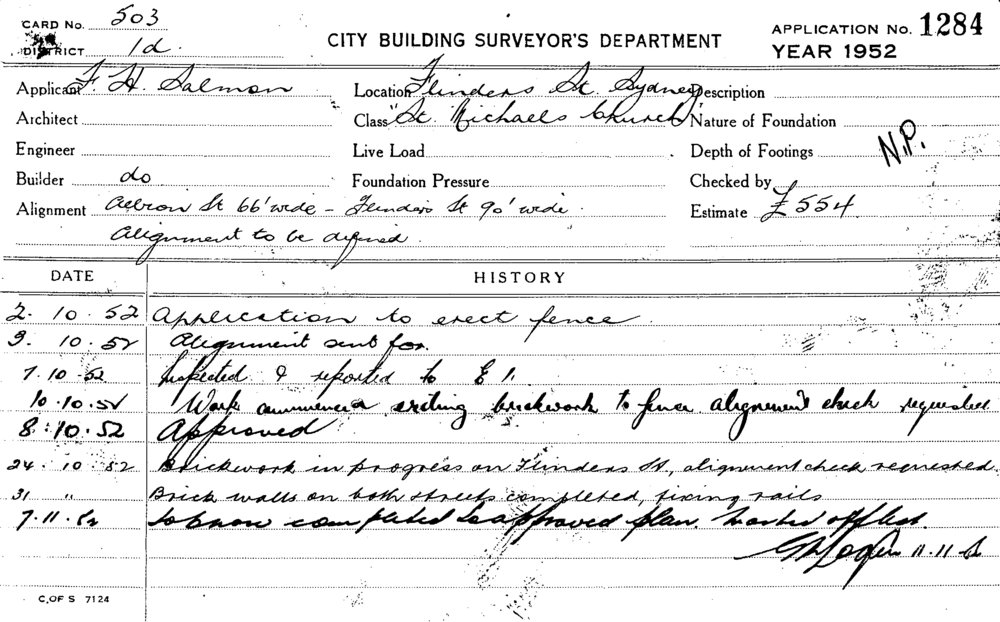 CARD No. 503
DISTRICT 1d.
CITY BUILDING SURVEYOR'S DEPARTMENT
APPLICATION No. 1284
YEAR 1952
Applicant F. H. Salmon
Location Flinders St. Sydney
Description
Architect
Class "St. Michaels Church"
Nature of Foundation
Engineer
Live Load
Depth of Footings
N.P.
Builder do
Foundation Pressure
Checked by
Alignment Albion St 66' wide - Flinders St 90' wide.
Estimate £554
Alignment to be defined.
DATE HISTORY
2. 10. 52 Application to erect fence
3. 10. 52 Alignment sent for.
7. 10. 52 Inspected & reported to E 1.
10. 10. 52 Work commenced brickwork to fence alignment check requested
8. 10. 52 Approved
24. 10. 52 Brickwork in progress on Flinders St, alignment check requested.
31 " Brick walls on both streets completed, fixing rails
7. 11. 52 Job now completed to approved plan.
11. 11. 52
C. OF S 7124